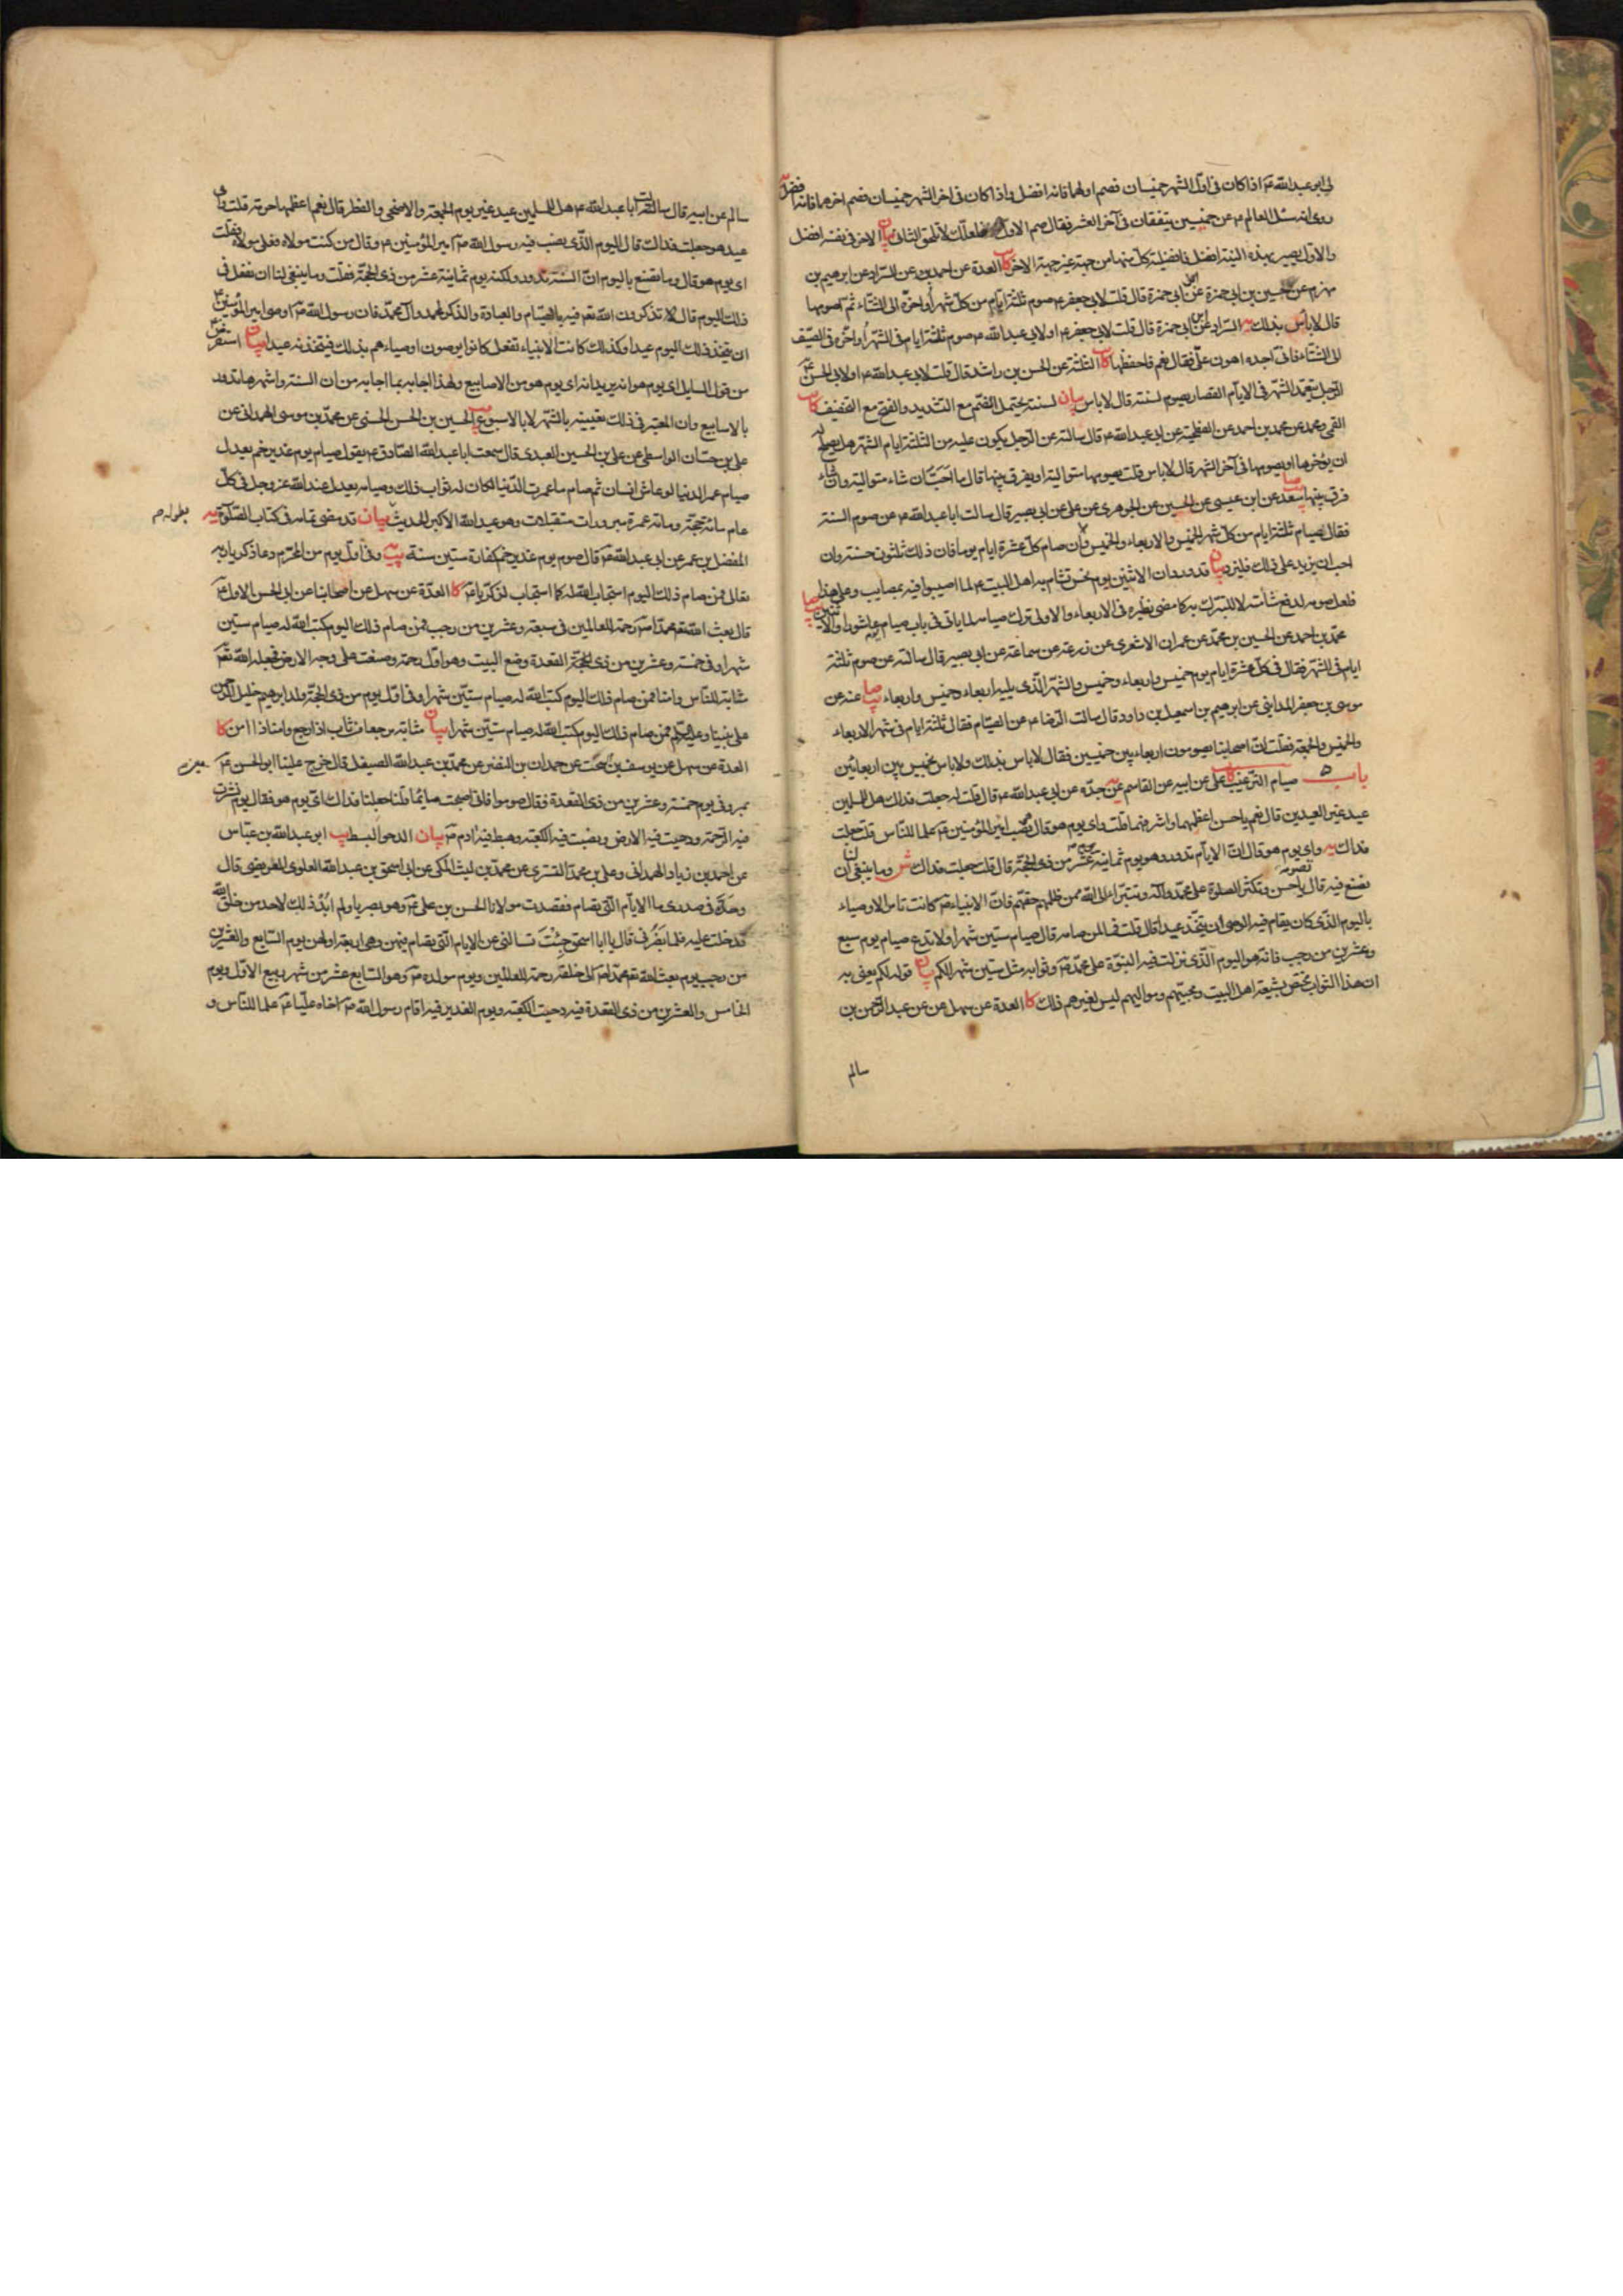 لى ابو عبدالله ع اذا كان فى اول الشهر خميسان فصم اولهما فانه افضل واذا كان فى اخر الشهر خميسان فصم اخرهما فانه افضل
روى انه سئل العالم ع عن خميسين يتفقان فى آخر العشر فقال صم الاول فلعلك لا تلحق الثانى بيان الاخر فى نفسه افضل
والاول يصير بهذه النية افضل فافضيلة كل منهما من جهة غير جهة الاخر كا العدة عن احمد عن السراد عن ابرهيم بن
مهزم عن حسين بن ابى حمزة عن ابى حمزة قال قلت لابى جعفر ع صوم ثلثة ايام من كل شهر اؤخره الى الشتاء ثم اصومها
قال لا بأس بذلك يه السراد عن ابن ابى حمزة قال قلت لابى جعفر ع او لابى عبد الله ع صوم ثلثة ايام فى الشهر اؤخره فى الصيف
الى الشتاء فانى اجده اهون على فقال نعم فاحفظها كا الثلثة عن الحسن بن راشد قال قلت لابى عبد الله ع او لابى الحسن ع
الرجل يتعمد الشهر فى الايام القصار يصوم لسنة قال لا باس بيان لسنة يحتمل الضم مع التشديد والفتح مع التخفيف
القمى ومحمد عن محمد بن احمد عن الفطحية عن ابى عبد الله ع قال سالته عن الرجل يكون عليه من الثلثة ايام الشهر هل يصلح له
ان يؤخرها او يصومها فى آخر الشهر قال لا باس قلت يصومها متوالية او يفرق بينها قال ما احب ان شاء متوالية وان شاء
فرق بينها يب صا سعد عن ابن عيسى عن الحسين عن الجوهرى عن على عن ابى بصير قال سالت ابا عبد الله ع عن صوم السنة
فقال صيام ثلثة ايام من كل شهر الخميس والاربعاء والخميس وان صام كل عشرة ايام يوما فان ذلك ثلثون حسنة وان
احب ان يزيد على ذلك فليزد بيان قد ورد ان الاثنين يوم نحس تشام به اهل البيت ع لما اصيبوا فيه بمصايب وعلى هذا
فلعل صومه لدفع شامته لا للتبرك به كما مضى نظيره فى الاربعاء والاولى ترك صيامه لما ياتى فى باب صيام يوم عاشورا والاثنين
محمد بن احمد عن الحسين بن محمد عن عمران الاشعرى عن زرعة عن سماعة عن ابى بصير قال سالته عن صوم ثلثة
ايام فى الشهر فقال فى كل عشرة ايام يوم خميس واربعاء وخميس والشهر الذى يليه اربعاء وخميس واربعاء يب صا عنه عن
موسى بن جعفر المداينى عن ابرهيم بن اسمعيل بن داود قال سالت الرضا ع عن الصيام فقال ثلثة ايام فى شهر الاربعاء
والخميس والجمعة فقلت ان اصحابنا يصومون اربعاء بين خميسين فقال لا باس بذلك ولا باس بخميس بين اربعائين
باب ٥ صيام الترغيب كا على عن ابيه عن القاسم عن جده عن ابى عبدالله ع قال قلت له جعلت فداك هل للمسلمين
عيد غير العيدين قال نعم يا حسن اعظمهما واشرفهما قلت واى يوم هو قال يوم نصب امير المؤمنين ع علما للناس قلت جعلت
فداك يه واى يوم هو قال ان الايام تدور وهو يوم ثمانية عشر من ذى الحجة قال قلت جعلت فداك ش وما ينبغى لنا ان
نصنع فيه قال تصومه يا حسن وتكثر الصلوة على محمد وآله وتتبرأ الى الله ممن ظلمهم حقهم فان الانبياء ع كانت تامر الاوصياء
باليوم الذى كان يقام فيه الوصى ان يتخذ عيدا قال قلت فما لمن صامه قال صيام ستين شهرا ولا تدع صيام يوم سبع
وعشرين من رجب فانه هو اليوم الذى نزلت فيه النبوة على محمد ص وثوابه مثل ستين شهر لكم بيان قوله لكم يعنى به
ان هذا الثواب مختص بشيعة اهل البيت ومحبيهم ومواليهم ليس لغيرهم ذلك كا العدة عن سهل عن عبد الرحمن بن
سالم
سالم عن ابيه قال سالت ابا عبدالله ع هل للمسلمين عيد غير يوم الجمعة والاضحى والفطر قال نعم اعظمها حرمة قلت واى
عيد هو جعلت فداك قال اليوم الذى نصب فيه رسول الله ص امير المؤمنين ع وقال من كنت مولاه فعلى مولاه فقلت
اى يوم هو قال وما تصنع باليوم ان السنة تدور ولكنه يوم ثمانية عشر من ذى الحجة فقلت وما ينبغى لنا ان نفعل فى
ذلك اليوم قال تذكرون الله تعه فيه بالصيام والعبادة والذكر لمحمد وآل محمد فان رسول الله ص اوصى امير المؤمنين ع
ان يتخذ ذلك اليوم عيدا وكذلك كانت الانبياء تفعل كانوا يوصون اوصياءهم بذلك فيتخذونه عيدا بيان استفسر
من قول السايل اى يوم هو انه يريد انه اى يوم هو من الاسابيع ولهذا اجابه بما اجابه من ان السنة واشهرها تدور
بالاسابيع وان المعتبر فى ذلك تعيينه بالشهر لا بالاسبوع يب الحسين بن الحسن الحسنى عن محمد بن موسى الهمدانى عن
على بن حسان الواسطى عن على بن الحسين العبدى قال سمعت ابا عبد الله الصادق ع يقول صيام يوم غدير خم يعدل
صيام عمر الدنيا لو عاش انسان ثم صام ما عمرت الدنيا لكان له ثواب ذلك وصيامه يعدل عند الله عز وجل فى كل
عام مائة حجة ومائة عمرة مبرورات متقبلات وهو عيد الله الاكبر الحديث بطوله م بيان قد مضى تمامه فى كتاب الصلوة يه
المفضل بن عمر عن ابى عبد الله ع قال صوم يوم غدير خم كفارة ستين سنة يه وفى اول يوم من المحرم دعا ذكريا ربه
تعالى فمن صام ذلك اليوم استجاب الله له كما استجاب لزكريا ع كا العدة عن سهل عن اصحابنا عن ابى الحسن الاول ع
قال بعث الله تعه محمدا ص رحمة للعالمين فى سبعة وعشرين من رجب فمن صام ذلك اليوم كتب الله له صيام ستين
شهرا وفى خمسة وعشرين من ذى القعدة وضع البيت وهو اول رحمة وضعت على وجه الارض فجعله الله تعه
مثابة للناس وامنا فمن صام ذلك اليوم كتب الله له صيام ستين شهرا وفى اول يوم من ذى الحجة ولد ابرهيم خليل الرحمن
على نبينا وعليه السلم فمن صام ذلك اليوم كتب الله له صيام ستين شهرا بيان مثابة مرجعا من ثاب اذا رجع وامنا ذا امن كا
العدة عن سهل عن يوسف بن السخت عن حمدان بن النضر عن محمد بن عبد الله الصيقل قال خرج علينا ابو الحسن ع
بمرو فى يوم خمسة وعشرين من ذى القعدة فقال صوموا فانى اصبحت صايما قلنا جعلنا فداك اى يوم هو فقال يوم نشرت
فيه الرحمة ودحيت فيه الارض ونصبت فيه الكعبة وهبط فيه آدم ع بيان الدحو البسط يب ابو عبد الله بن عياش
عن احمد بن زياد الهمدانى وعلى بن محمد التسترى عن محمد بن ليث المكى عن ابى اسحق بن عبد الله العلوى العريضى قال
وحك فى صدرى ما الايام التى تصام فقصدت مولانا الحسن بن على ع وهو بصريا ولم ابد ذلك لاحد من خلق الله
فدخلت عليه فلما بصر بى قال يا ابا اسحق جئت تسالنى عن الايام التى يصام فيهن وهى اربعة اولهن يوم السابع والعشرين
من رجب يوم بعث الله تعه محمدا ص الى خلقه رحمة للعالمين ويوم مولده ص وهو السابع عشر من شهر ربيع الاول ويوم
الخامس والعشرين من ذى القعدة فيه دحيت الكعبة ويوم الغدير فيه اقام رسول الله ص اخاه عليا ع علما للناس و